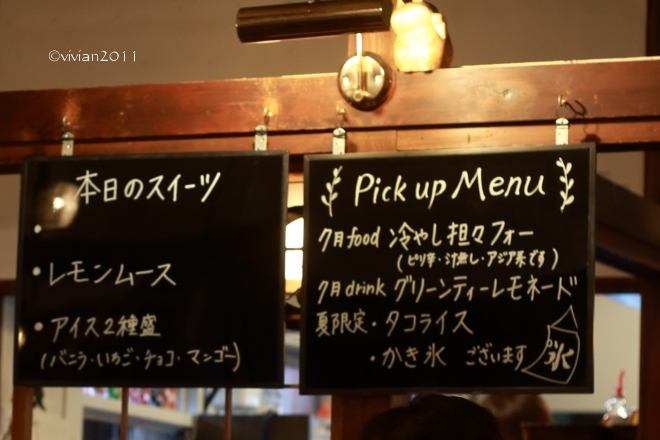 ©vivian2011
本日のスイーツ
•
• レモンムース
• アイス2種盛
(バニラ・いちご・チョコ・マンゴー)
Pick up Menu
7月food 冷やし担々フォー
(ピリ辛・汁無し・アジア系です)
7月drink グリーンティーレモネード
夏限定・タコライス
・かき氷 ございます
氷